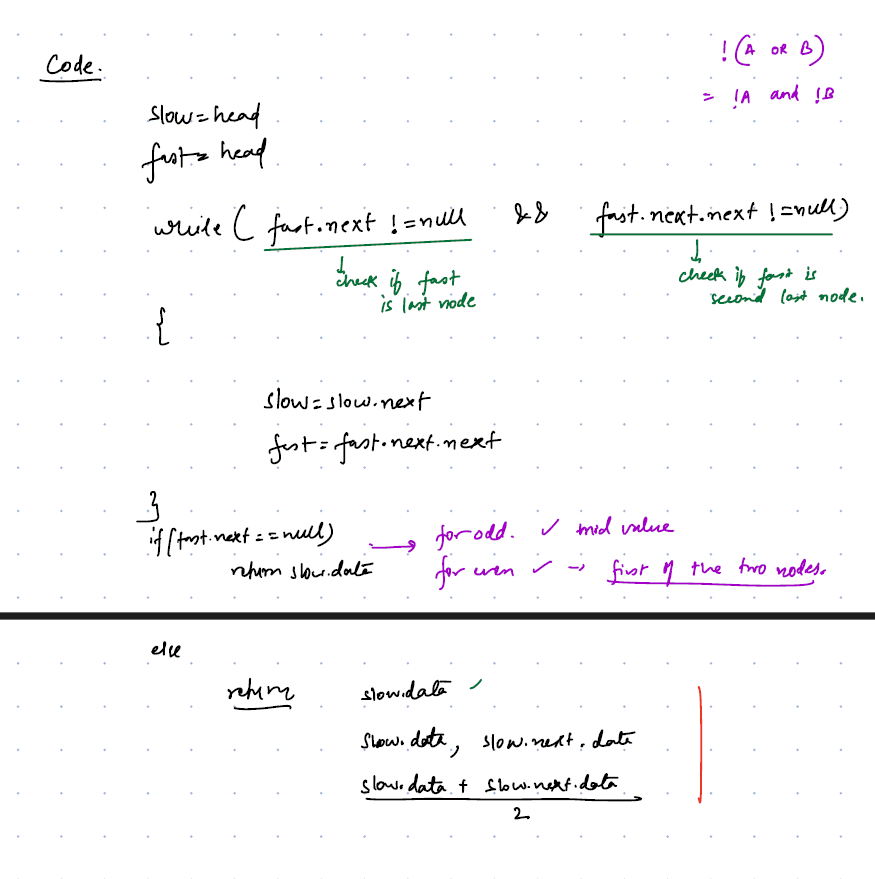 Code.
!(A OR B)
= !A and !B
slow = head
fast = head
while ( fast.next != null && fast.next.next != null)
check if fast
is last node
check if fast is
second last node.
{
slow = slow.next
fast = fast.next.next
}
if (fast.next == null) → for odd. ✓ mid value
return slow.data for even ✓ → first of the two nodes.
else
return slow.data ✓
slow.data, slow.next.data
slow.data + slow.next.data
2